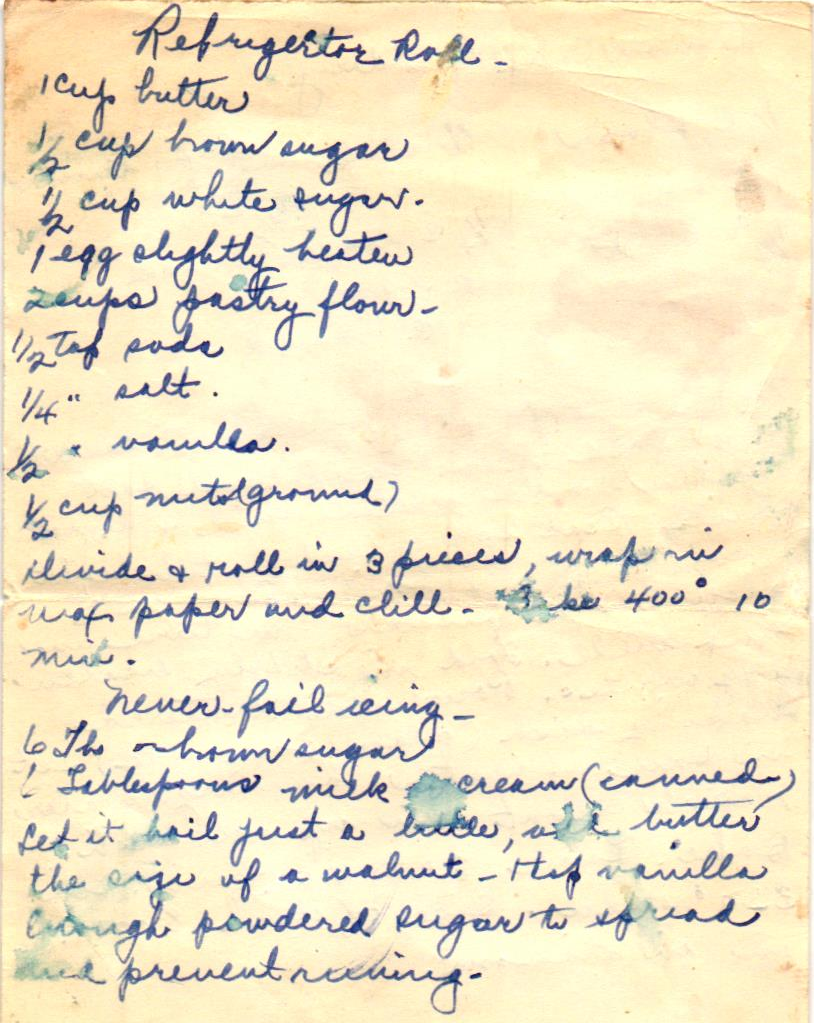 Refrigertor Roll -
1 cup butter
1/2 cup brown sugar
1/2 cup white sugar.
1 egg slightly beaten
2 cups pastry flour -
1/2 tsp soda
1/4 " salt.
1/2 " vanilla.
1/2 cup nuts (ground)
Divide & roll in 3 pieces, wrap in
wax paper and chill. Bake 400° 10
min.
Never-fail icing -
6 Tbs brown sugar
6 Tablespoons milk cream (canned)
Let it boil just a little, add butter
the size of a walnut - 1 tsp vanilla
Enough powdered sugar to spread
and prevent running -